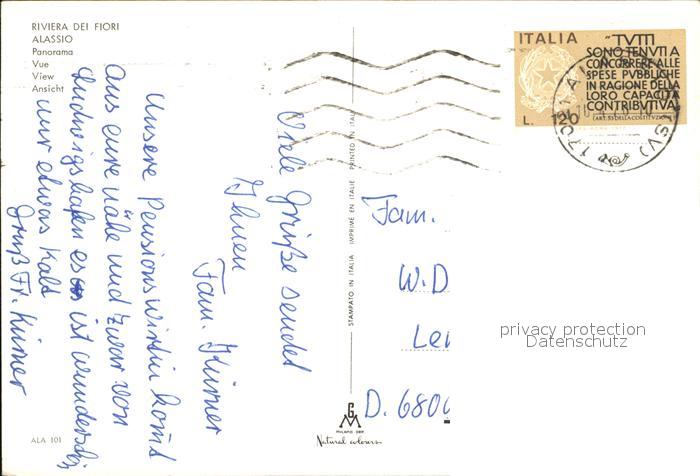 RIVIERA DEI FIORI
ALASSIO
Panorama
Vue
View
Ansicht
Viele Grüße sendet
Ihnen
Fam. Kirner
Unsere Pensionswirtin komt
Aus eure nähe und zwar von
Ludwigshafen es ist wunderschön
nur etwas kalt
Gruß Fr. Kirner
ALA 101
STAMPATO IN ITALIA IMPRIMÉ EN ITALIE PRINTED IN ITALY
GM
MILANO
Natural colours
ITALIA
"TVTTI
SONO TENVTI A
CONCORRERE ALLE
SPESE PVBBLICHE
IN RAGIONE DELLA
LORO CAPACITÀ
CONTRIBVTIVA"
(ART. 53 DELLA COSTITVZIONE)
L. 120
(SV)
Fam.
W.D
Lei
D. 680
privacy protection
Datenschutz